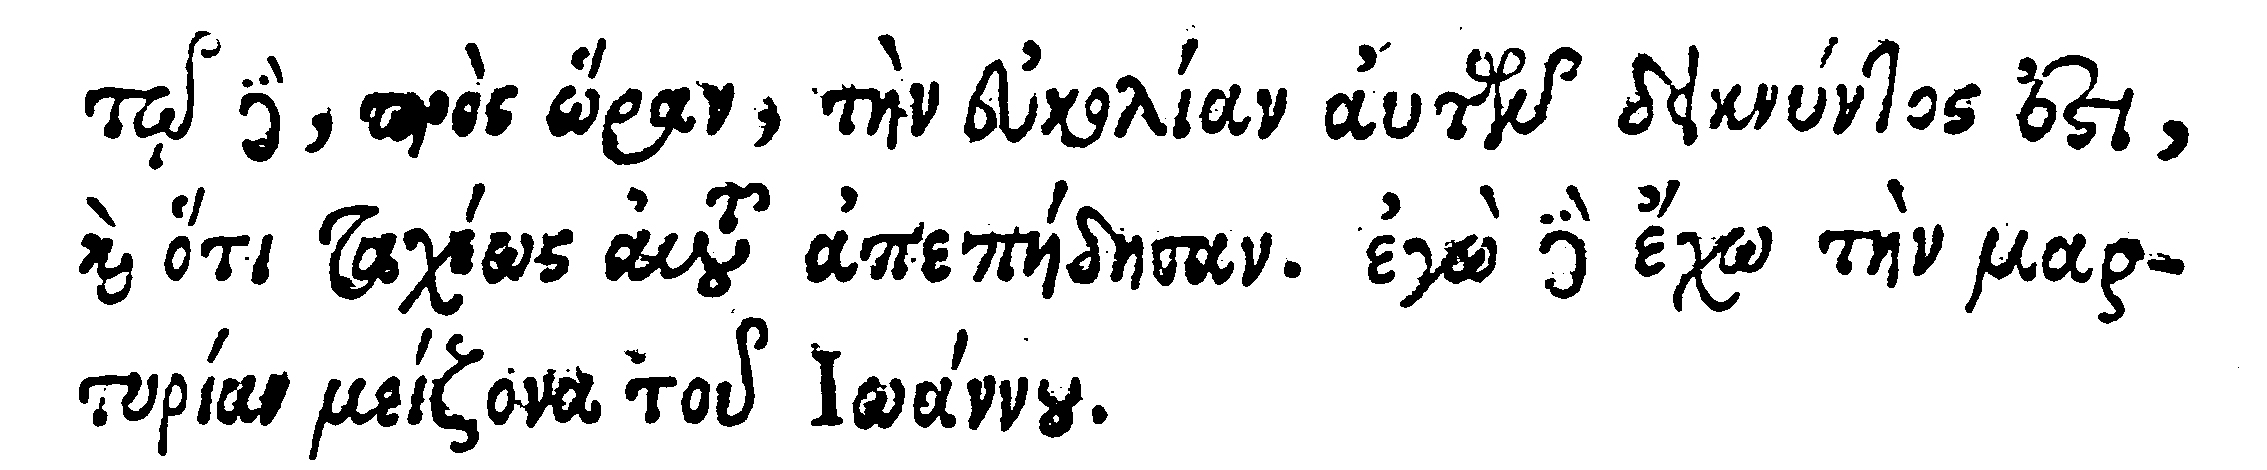 τῷ δὲ, πρὸς ὥραν, τὴν εὐκολίαν αὐτῶν δεικνύντός ἐστι,
καὶ ὅτι ταχέως αὐτοῦ ἀπεπήδησαν. ἐγὼ δὲ ἔχω τὴν μαρ-
τυρίαν μείζονα τοῦ Ἰωάννου.